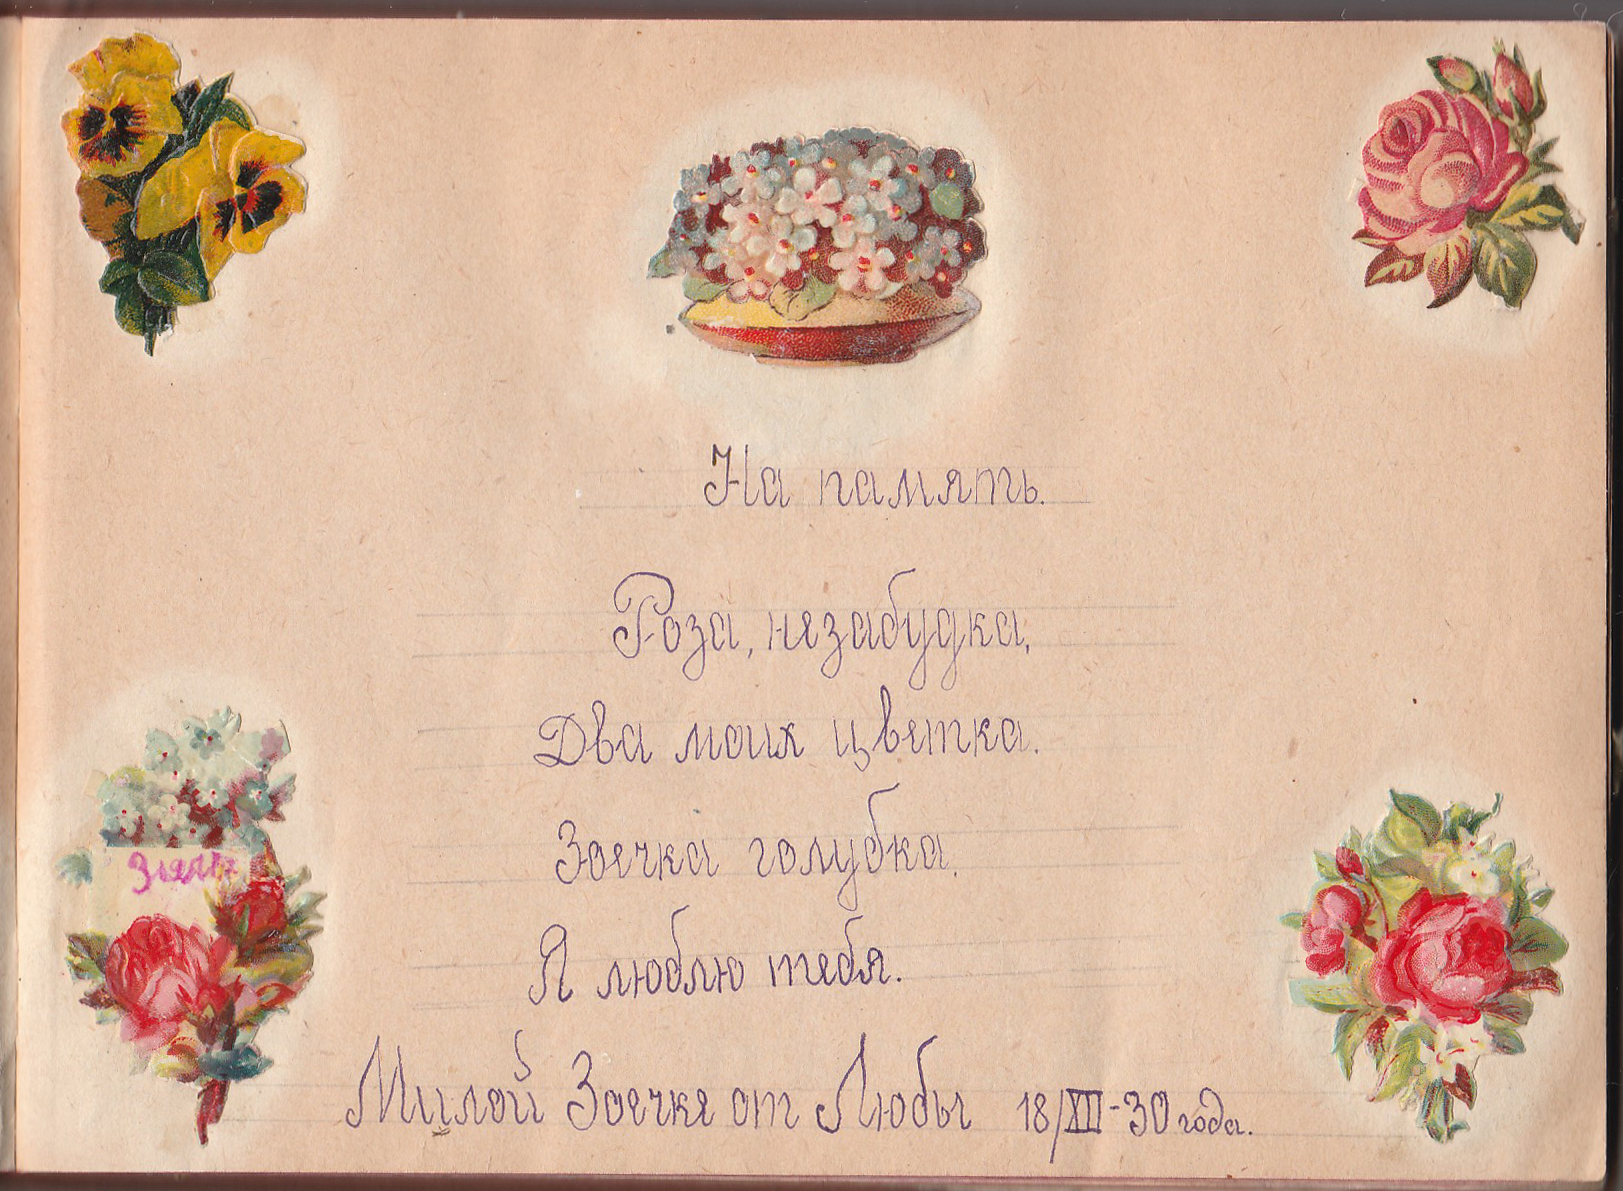 На память.
Роза, незабудка,
Два моих цветка.
Зоечка голубка.
Я люблю тебя.
Милой Зоечке от Любы 18/XII-30 года.